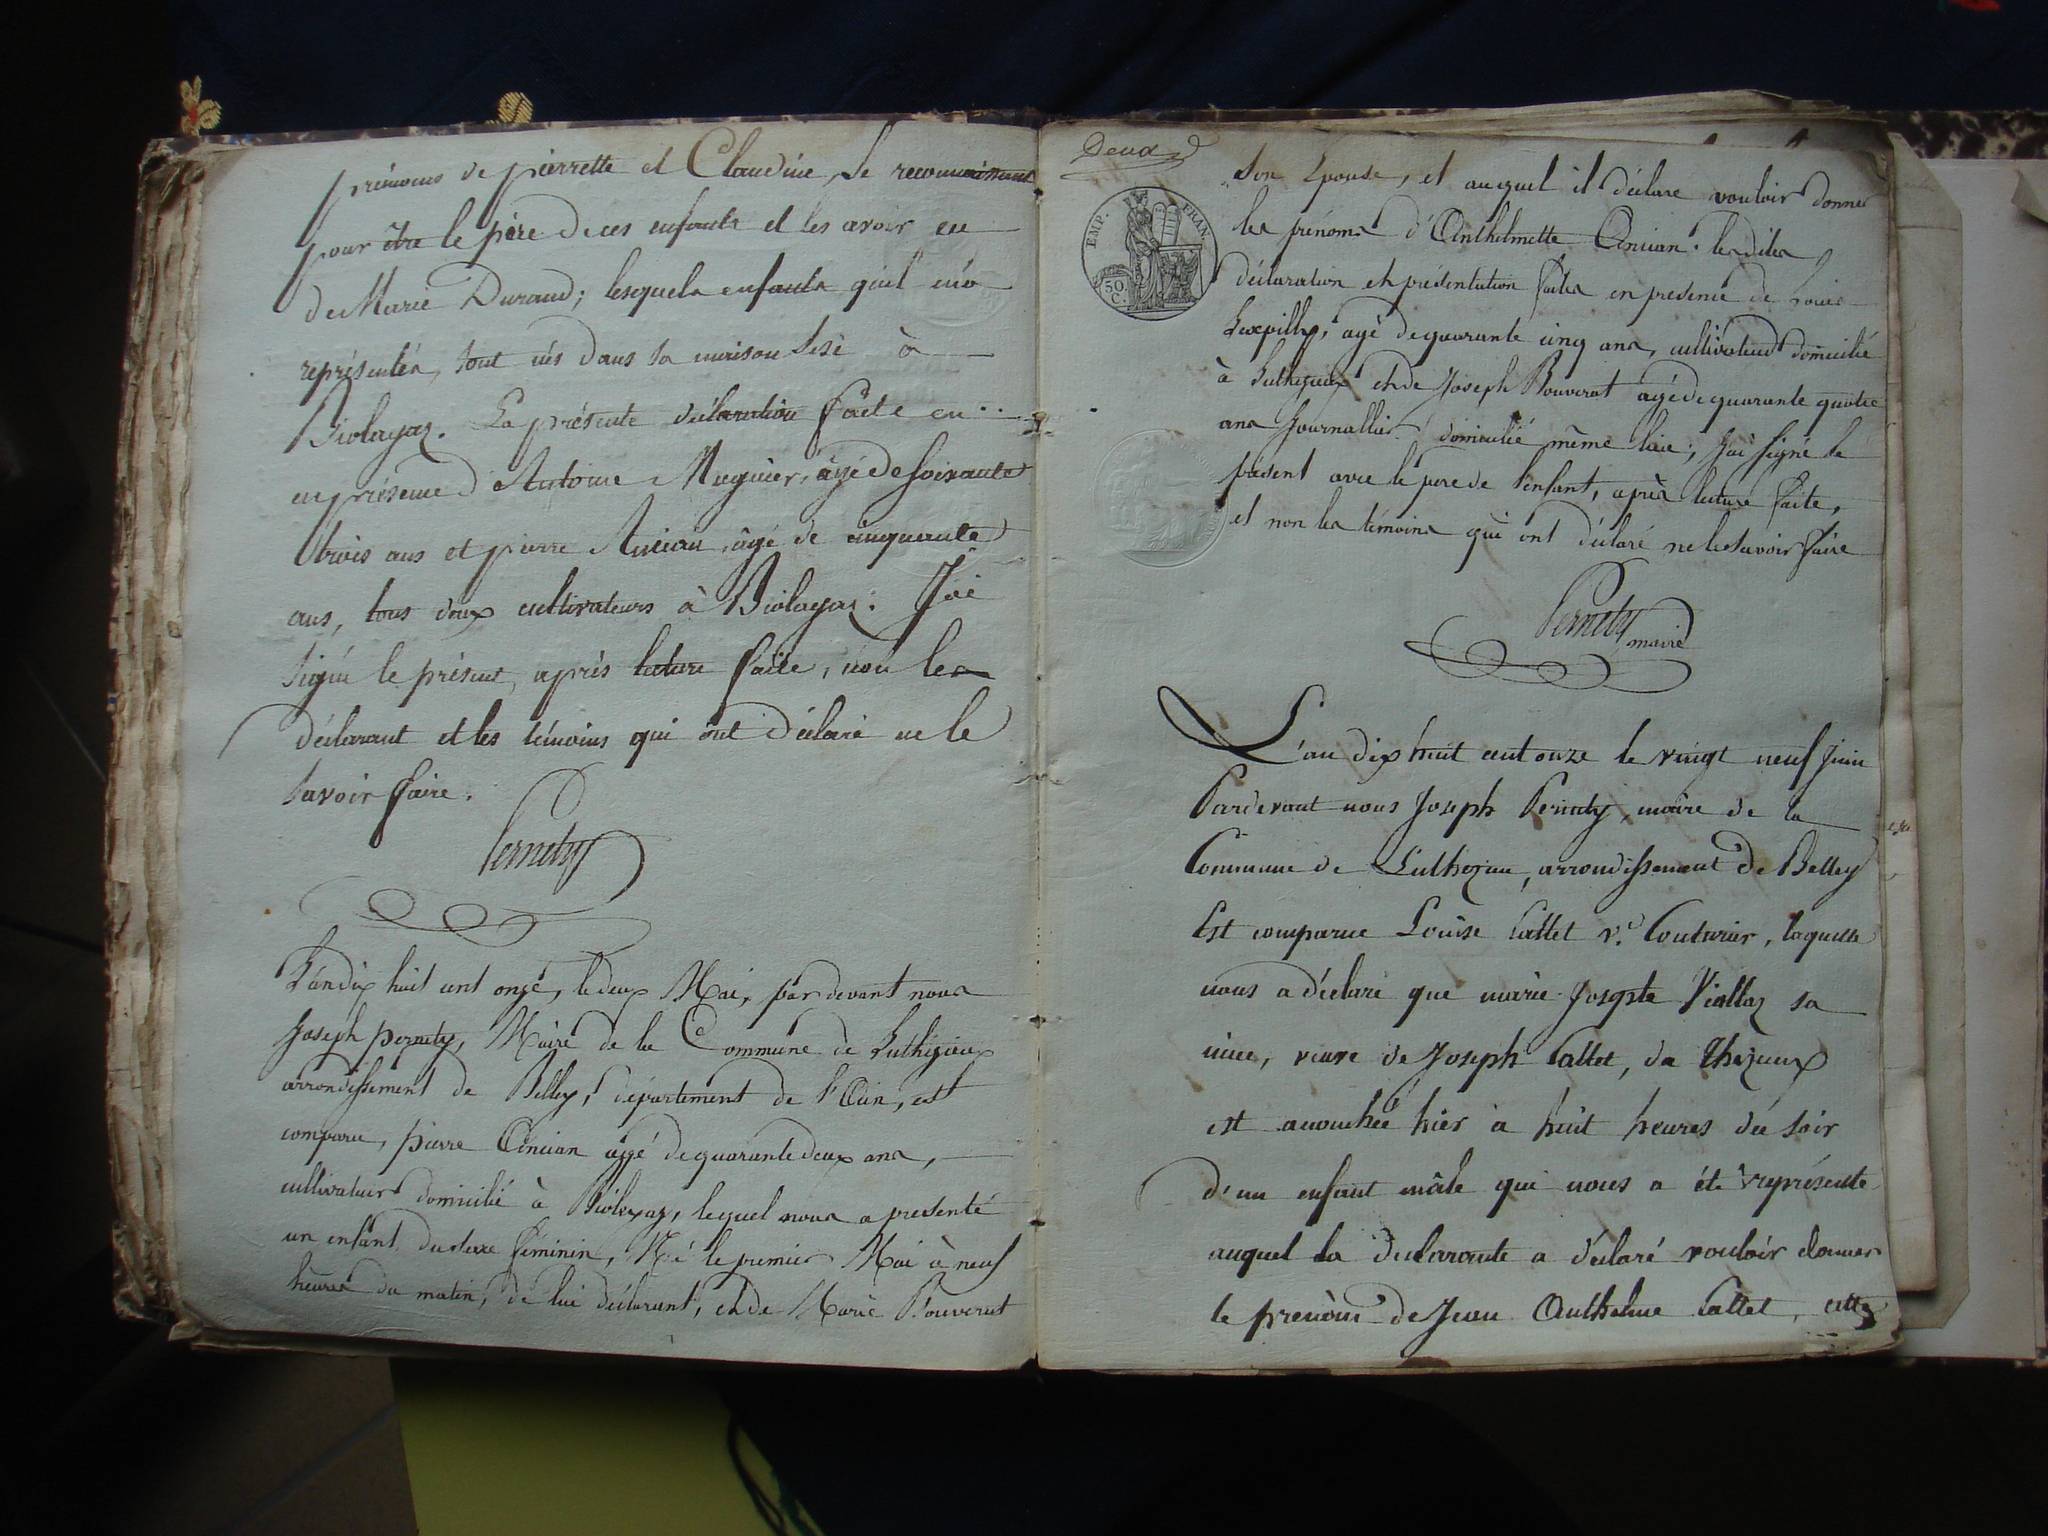 prénoms de pierrette et Claudine, se reconnaissant
pour être le père de ces enfants et les avoir eu
de Marie Durand; lesquels enfants qu'il m'a
représentés, sont nés dans sa maison sise à
Biolayaz. La présente déclaration faite en
en présence d'Antoine Muguier, âgé de soixante
trois ans et pierre Ancian, âgé de cinquante
ans, tous deux cultivateurs à Biolayaz. J'ai
signé le présent, après lecture faite, non les
déclarant et les témoins qui ont déclaré ne le
savoir faire.
Pernety
L'an dix huit cent onze, le deux Mai, par devant nous
Joseph pernety, Maire de la Commune de Luthézieux
arrondissement de Belley, département de l'Ain, est
comparu, pierre Ancian âgé de quarante deux ans,
cultivateur domicilié à Biolayaz, lequel nous a presenté
un enfant du sexe féminin, Né le premier Mai à neuf
heures du matin, de lui déclarant, et de Marie Bouverat
Deux
EMP. FRAN.
50 C.
son Epouse, et auquel il déclare vouloir donner
les prénoms d'Anthelmette Ancian. lesdites
déclaration et présentation faites en presence de Louis
âgé de quarante cinq ans, cultivateur domicilié
à Luthézieux et de Joseph Bouverat agé de quarante quatre
ans Journallier domicilié même lieu; j'ai signé le
présent avec le pere de l'enfant, après lecture faite,
et non les témoins qui ont déclaré ne le savoir faire
Pernety maire
L'an dix huit cent onze le vingt neuf juin
Pardevant nous Joseph Pernety, maire de la
Commune de Luthezieu, arrondissement de Belley
Est comparue Louise Callet v.e Couturier, laquelle
nous a déclaré que marie Josepte Viallaz sa
mere, veuve de Joseph Callet, du Thezieux
est accouchée hier à huit heures du soir
d'un enfant mâle qui nous a été représenté
auquel la declarante a déclaré vouloir donner
le prenom de Jean Anthelme Callet, cette